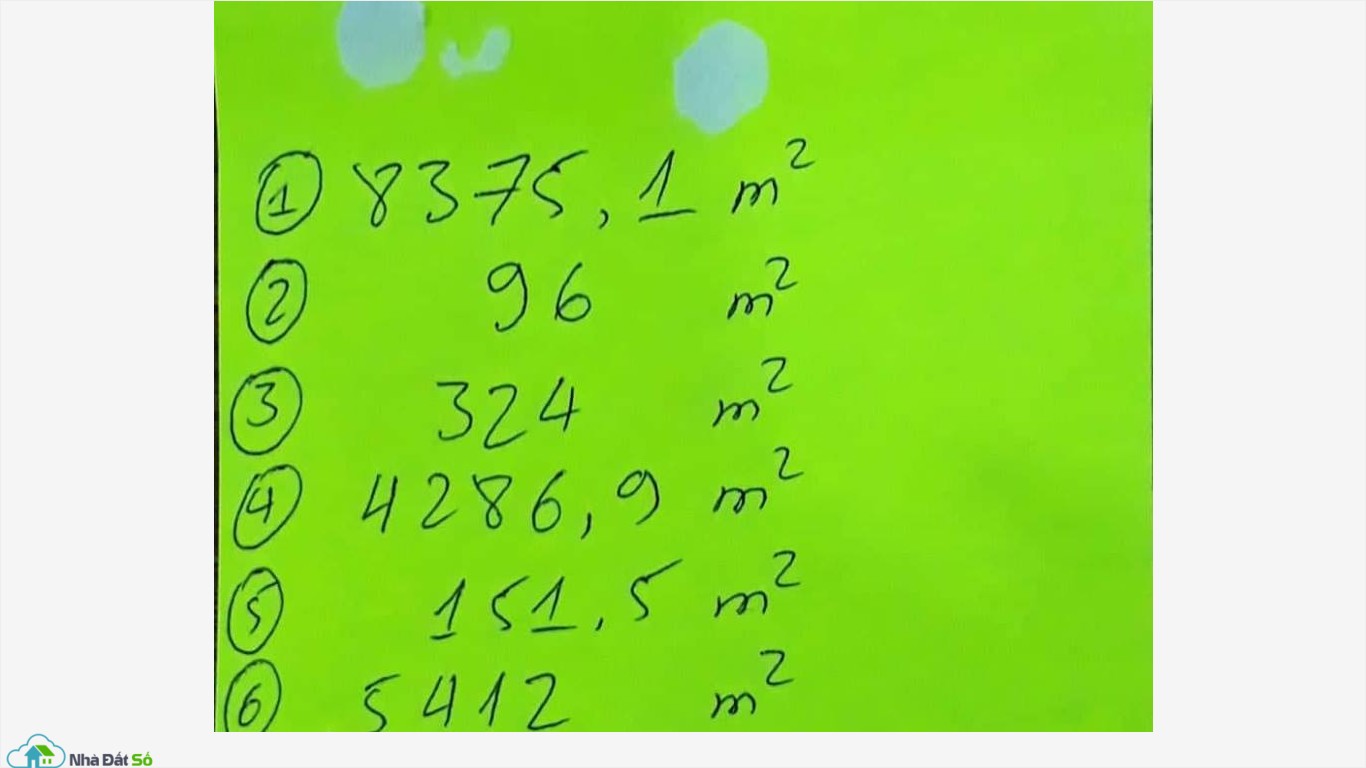 ① 8375,1 m²
② 96 m²
③ 324 m²
④ 4286,9 m²
⑤ 151,5 m²
⑥ 5412 m²
Nhà Đất Số